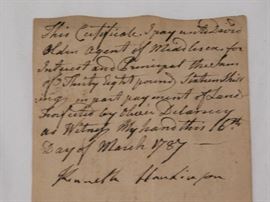 This Certificate I pay unto David
Olden Agent of Middlesex for
Interest and Principal the Sum
of Thirty Eight pound, Sixteen Shill
ings in part payment of Land
forfeited by Oliver Delancey
as Witness My hand this 16th
Day of March 1787 —
Kenneth Hankinson